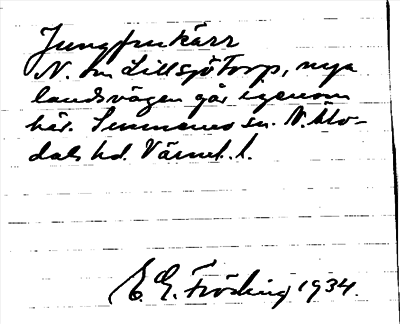 Jungfrukärr
N. om Lillsjötorp, nya
landsvägen går igenom
här. Sunnemo sn. N. Älv-
dals hd. Värml. l.
E. G. Fröding 1934.